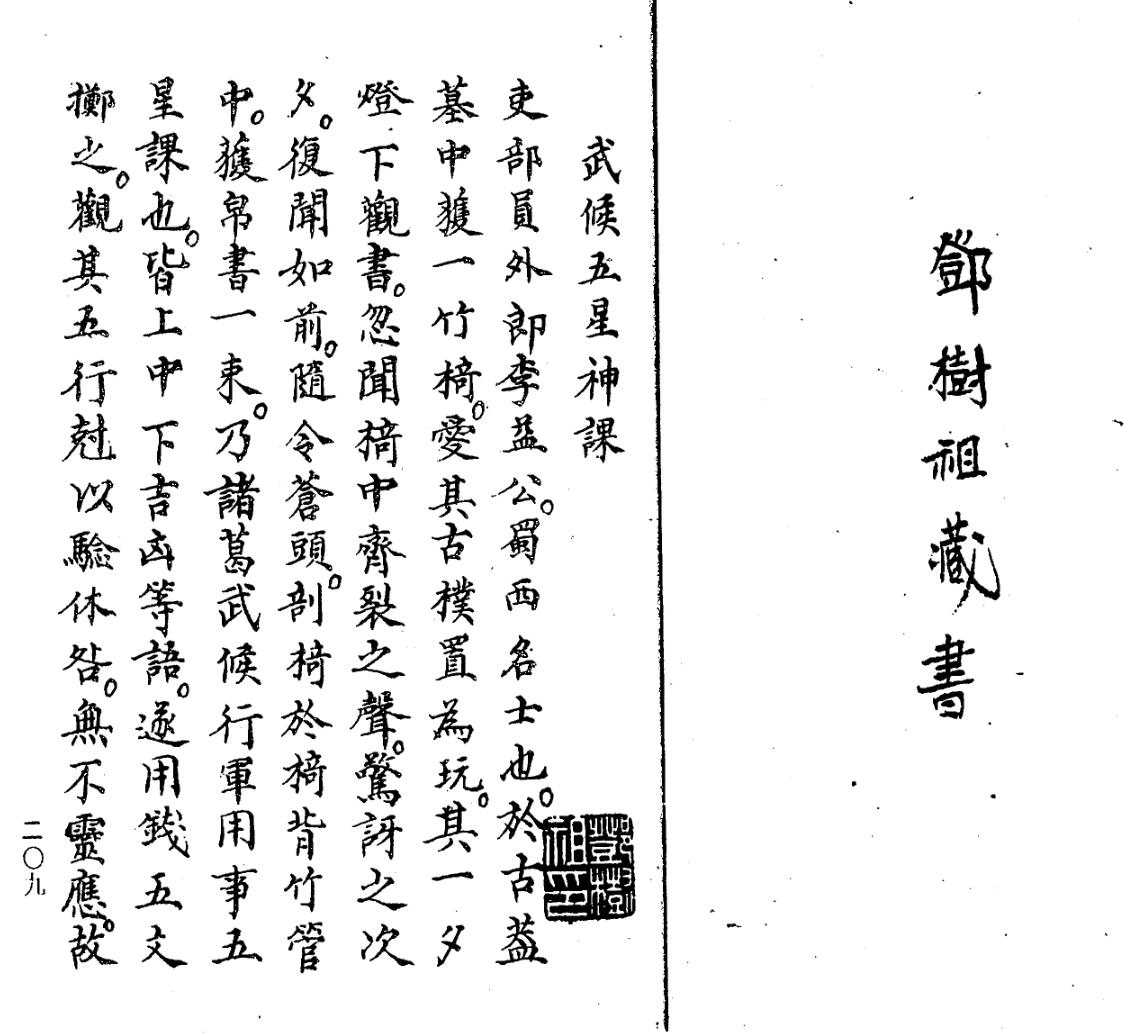 鄧樹祖藏書
武候五星神課
吏部員外郎李益公。蜀西名士也。於古葢
墓中獲一竹椅。愛其古樸置為玩。其一夕
燈下觀書。忽聞椅中齊裂之聲。驚訝之次
夕。復聞如前。隨令蒼頭。剖椅於椅背竹管
中。獲帛書一束。乃諸葛武候行軍用事五
星課也。皆上中下吉凶等語。遂用錢五文
擲之。觀其五行尅以驗休咎。無不靈應。故
二〇九